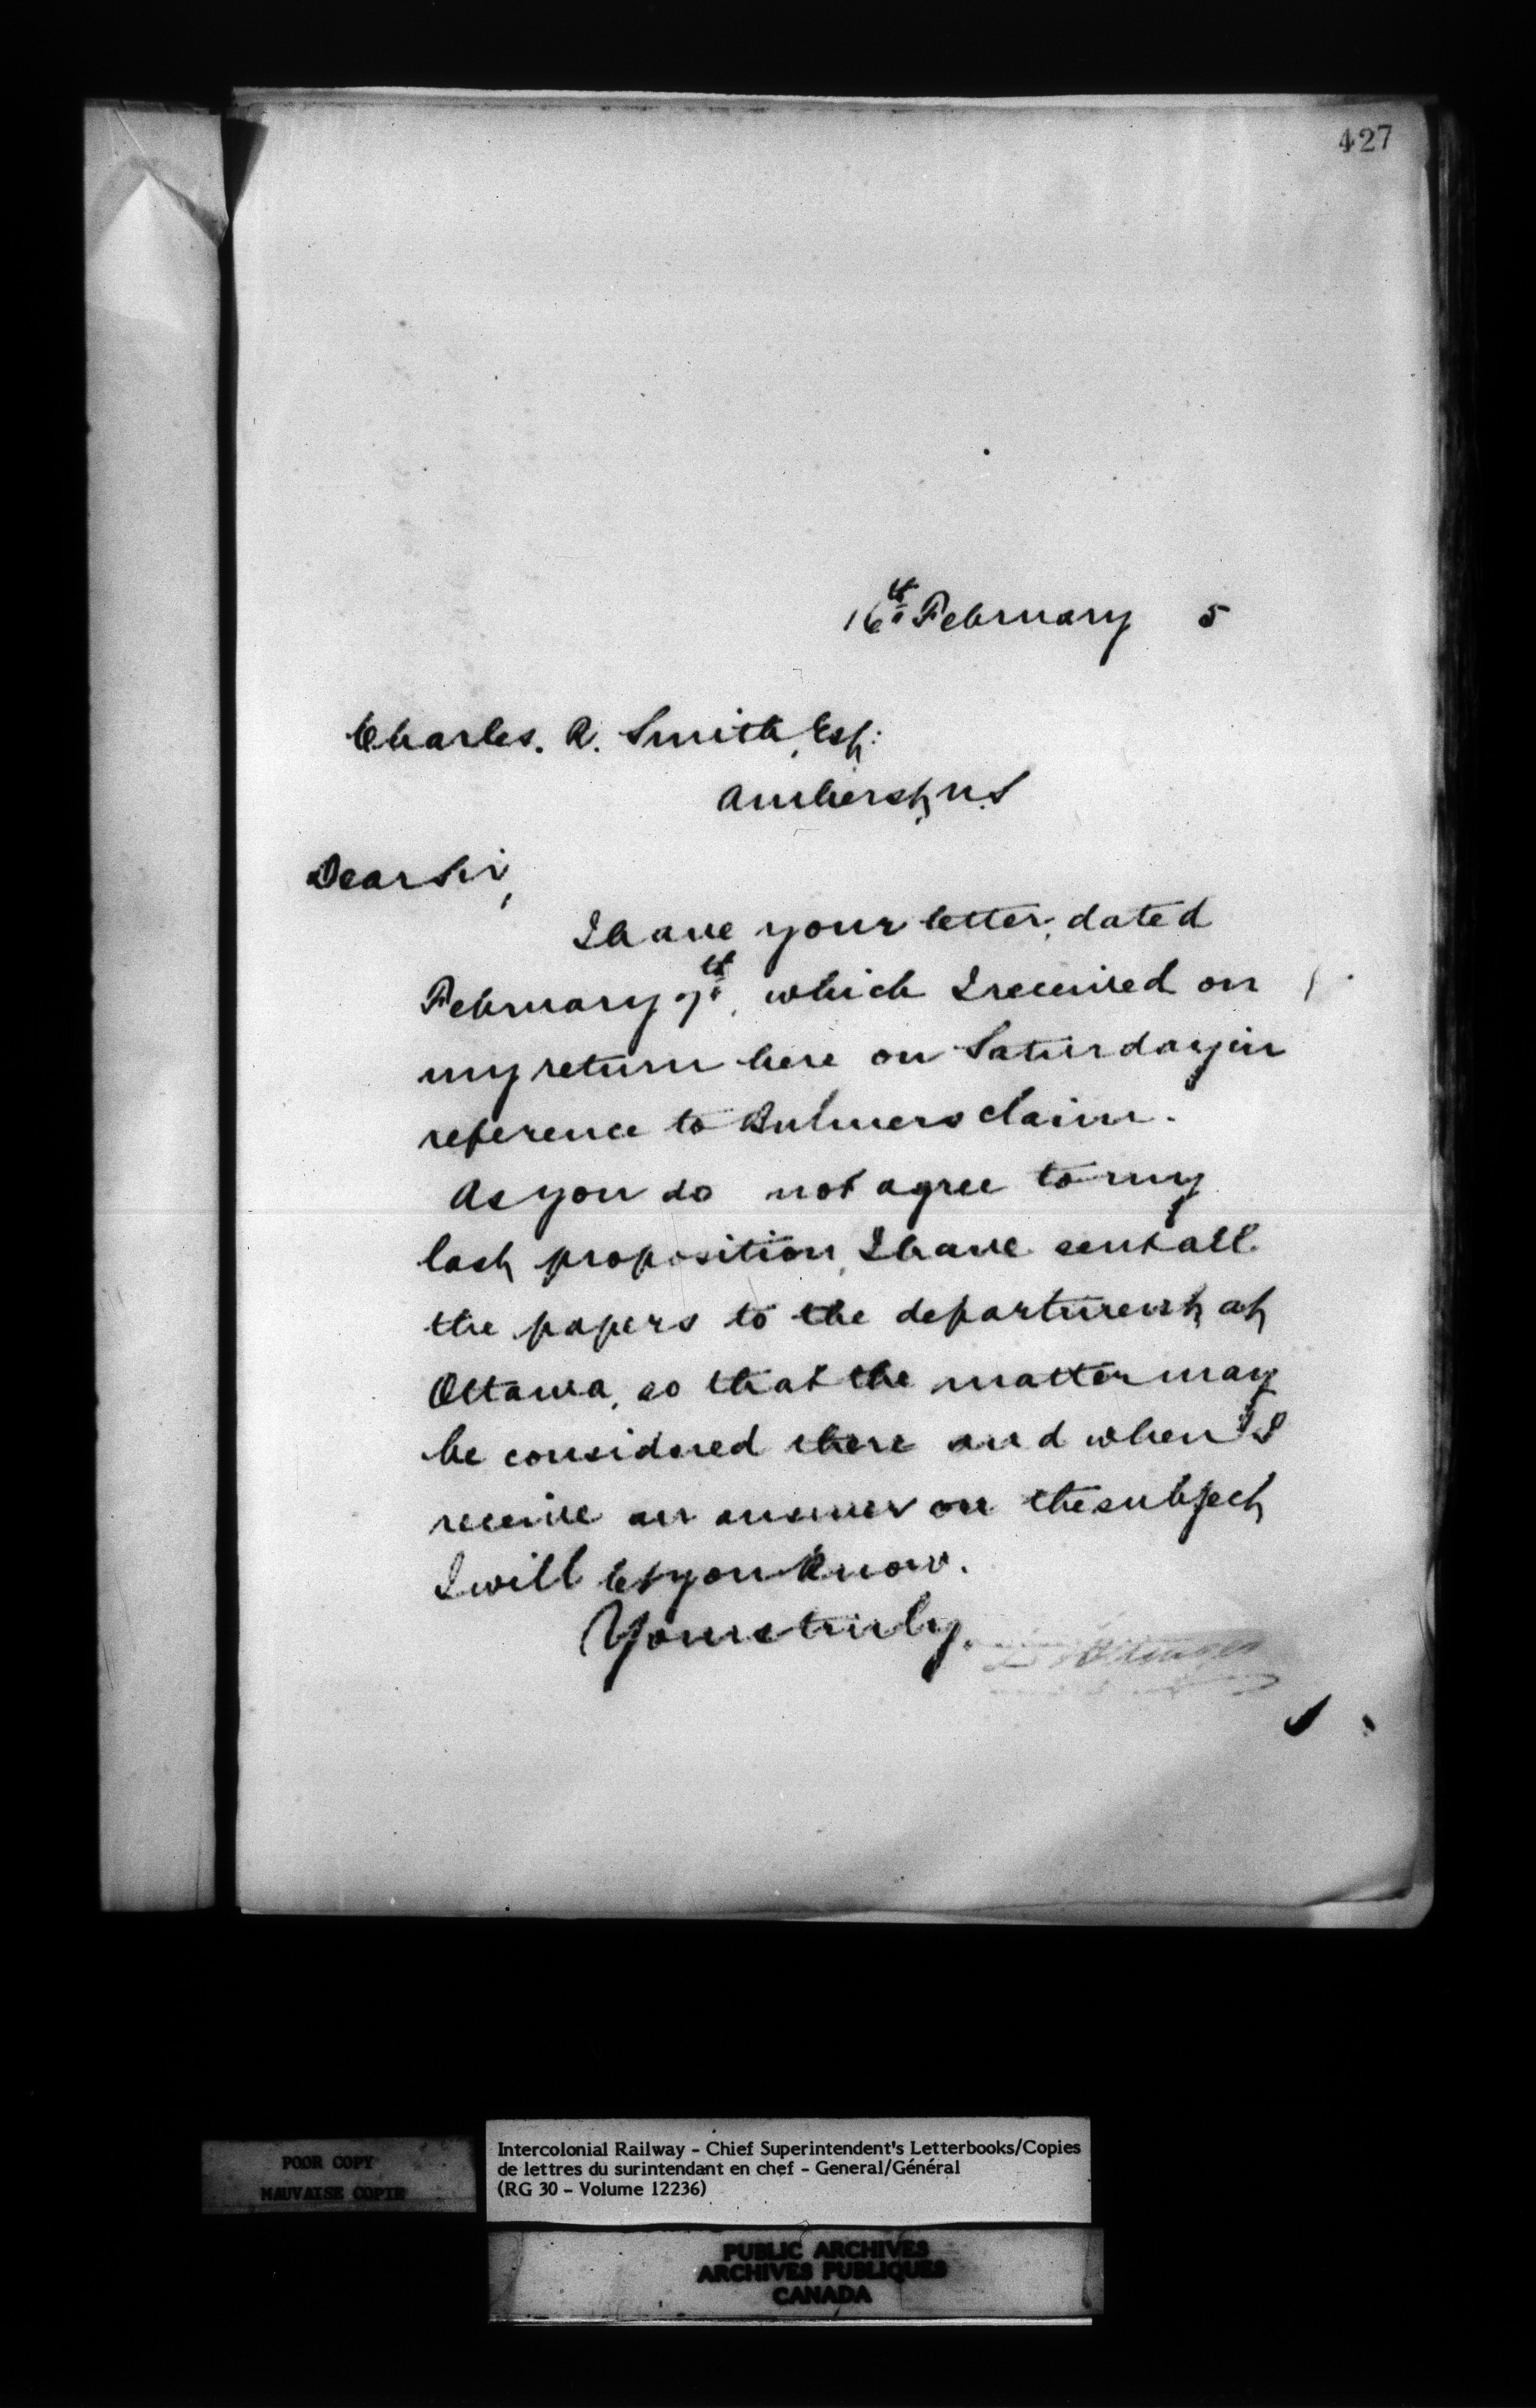 427
16th February 5
Charles. R. Smith, Esq:
Amherst, N.S
Dear Sir,
I have your letter, dated
February 7th, which I received on
my return here on Saturday in
reference to Bulmers claim.
As you do not agree to my
last proposition, I have sent all
the papers to the department at
Ottawa, so that the matter may
be considered there and when I
receive an answer on the subject
I will let you know.
Yours truly,
D Pottinger
POOR COPY
MAUVAISE COPIE
Intercolonial Railway - Chief Superintendent's Letterbooks/Copies
de lettres du surintendant en chef - General/Général
(RG 30 - Volume 12236)
PUBLIC ARCHIVES
ARCHIVES PUBLIQUES
CANADA